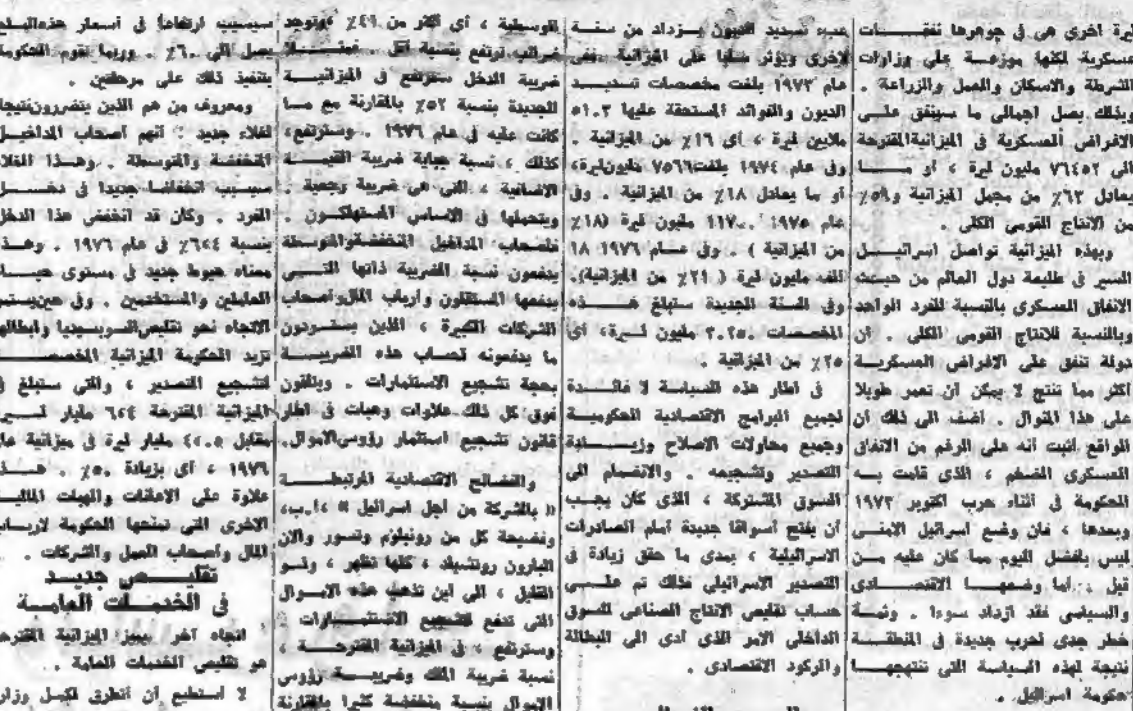 ليرة اخرى هي في جوهرها نفقـــــات
عسكرية لكنها موزعـــة على وزارات
الشرطة والاسكان والعمل والزراعة .
وبذلك يصل اجمالي ما سينفق علـــى
الاغراض العسكرية في الميزانية المقترحة
الى ٧٦٤٥٢ مليون ليرة ، أو مـــــا
يعادل ٦٢٪ من مجمل الميزانية و٥٩٪
من الانتاج القومي الكلي .
وبهذه الميزانية تواصل اسرائيـــل
السير في طليعة دول العالم من حيـــث
الانفاق العسكري بالنسبة للفرد الواحد
وبالنسبة للانتاج القومي الكلي . ان
دولة تنفق على الاغراض العسكريـــة
اكثر مما تنتج لا يمكن ان تعمر طويلا
على هذا المنوال . اضف الى ذلك أن
الواقع اثبت انه على الرغم من الانفاق
العسكري الضخم ، الذي قامت بـــه
الحكومة في اثناء حرب اكتوبر ١٩٧٣
وبعدها ، فان وضع اسرائيل الامنـــي
ليس بأفضل اليوم مما كان عليه مـــن
قبل . اما وضعهـــا الاقتصـــادي
والسياسي فقد ازداد سوءا . وثمـــة
خطر جدى لحرب جديدة في المنطقـــة
نتيجة لهذه السياسة التي تنتهجهـــا
حكومة اسرائيل .
عبء تسديد الديون يـــزداد من سنـــة
لاخرى ويؤثر سلبا على الميزانية . ففي
عام ١٩٧٣ بلغت مخصصات تسديـــد
الديون والفوائد المستحقة عليها ٥١٠٣
ملايين ليرة ، اى ١٦٪ من الميزانية .
وفي عام ١٩٧٤ بلغت ٧٥٦٦ مليون ليرة،
أو ما يعادل ١٨٪ من الميزانية . وفي
عام ١٩٧٥ ١١٧٠٠ مليون ليرة (١٨٪
من الميزانية ) . وفي عـــام ١٩٧٦ ١٨
الف مليون ليرة ( ٢١٪ من الميزانية).
وفي السنة الجديدة ستبلغ هـــــذه
المخصصات ٣٠٢٥٠ مليون لـــيرة، أى
٢٥٪ من الميزانية .
في اطار هذه السياسة لا فائـــدة
لجميع البرامج الاقتصادية الحكوميـــة
وجميع محاولات الاصلاح وزيـــــادة
التصدير وتشجيعه . والانضمام الى
السوق المشتركة ، الذي كان يجـــب
أن يفتح أسواقا جديدة أمام الصادرات
الاسرائيلية ، يبدى ما حقق زيادة في
التصدير الاسرائيلي فذلك تم علـــى
حساب تقليص الانتاج الصناعي للسوق
الداخلي الامر الذي أدى الى البطالة
والركود الاقتصادى .
المتوسطية ، أي اكثر من ٤٩٪ وتوجد
ضرائب ترتفع بنسبة أقل . فمثـــــلا
ضريبة الدخل سترتفع في الميزانيـــة
الجديدة بنسبة ٥٢٪ بالمقارنة مع مـــا
كانت عليه في عام ١٩٧٦ . وسترتفع،
كذلك ، نسبة جباية ضريبة القيمـــة
الاضافية ، التي هي ضريبة رجعية .
ويتحملها في الاساس المستهلكـــون .
فأصحاب المداخيل المنخفضة والمتوسطة
يدفعون نسبة الضريبة ذاتها التـــي
يدفعها المستقلون وارباب المال وأصحاب
الشركات الكبيرة ، الذين يستـــردون
ما يدفعونه لحساب هذه الضريبـــة
بحجة تشجيع الاستثمارات . ويتلقون
فوق كل ذلك علاوات وهبات في اطار
قانون تشجيع استثمار رؤوس الاموال.
والفضائح الاقتصادية المرتبطـــــة
« بالشركة من أجل اسرائيل » ،ا.ب.
وفضيحة كل من روتبلوم وتسور والان
البارون روتشيلد ، كلها تظهر ، ولـــو
القليل ، الى أين تذهب هذه الامـــوال
التي تدفع لتشجيع الاستثمـــــارات .
وسترتفع ، في الميزانية المقترحـــة ،
نسبة ضريبة الملك وضريبـــة رؤوس
الاموال بنسبة منخفضة كثيرا بالمقارنة
سيسبب ارتفاعا في أسعار هذه السلع
يصل الى ٦٠٪ . وربما تقوم الحكومة
بتنفيذ ذلك على مرحلتين .
ومعروف من هم الذين يتضررون نتيجة
لغلاء جديد : انهم أصحاب المداخيـــل
المنخفضة والمتوسطة . وهـــذا الغلاء
سيسبب انخفاضا جديدا في دخـــــل
الفرد . وكان قد انخفض هذا الدخل
بنسبة ٦،٤٪ في عام ١٩٧٦ . وهـــذا
معناه هبوط جديد في مستوى حيـــاة
العاملين والمستخدمين . وفي حين يستمر
الاتجاه نحو تقليص السوبسيديا وابطالها
تزيد الحكومة الميزانية المخصصـــة
لتشجيع التصدير ، والتي ستبلغ في
الميزانية المقترحة ٦،٤ مليار لـــيرة
مقابل ٤،٠٥ مليار ليرة في ميزانية عام
١٩٧٦ ، أى بزيادة ٥٠٪ . هـــــذا
علاوة على الاعانات والهبات الماليـــة
الاخرى التي تمنحها الحكومة لاربـــاب
المال وأصحاب العمل والشركات .
تقليـــص جديـــد
في الخدمـــات العامـــة
اتجاه آخر يميز الميزانية المقترحة
هو تقليص الخدمات العامة .
لا استطيع أن أتطرق لكـــل وزارة